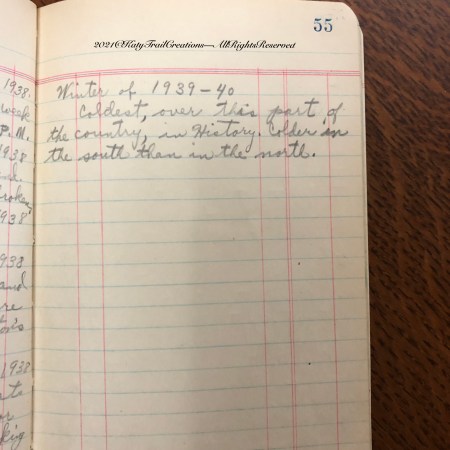 55
2021©KatyTrailCreations—AllRightsReserved
Winter of 1939-40
Coldest, over this part of
the country, in History. Colder in
the south than in the north.
1938.
week
P.M.
1938
1938
1938
and
1938